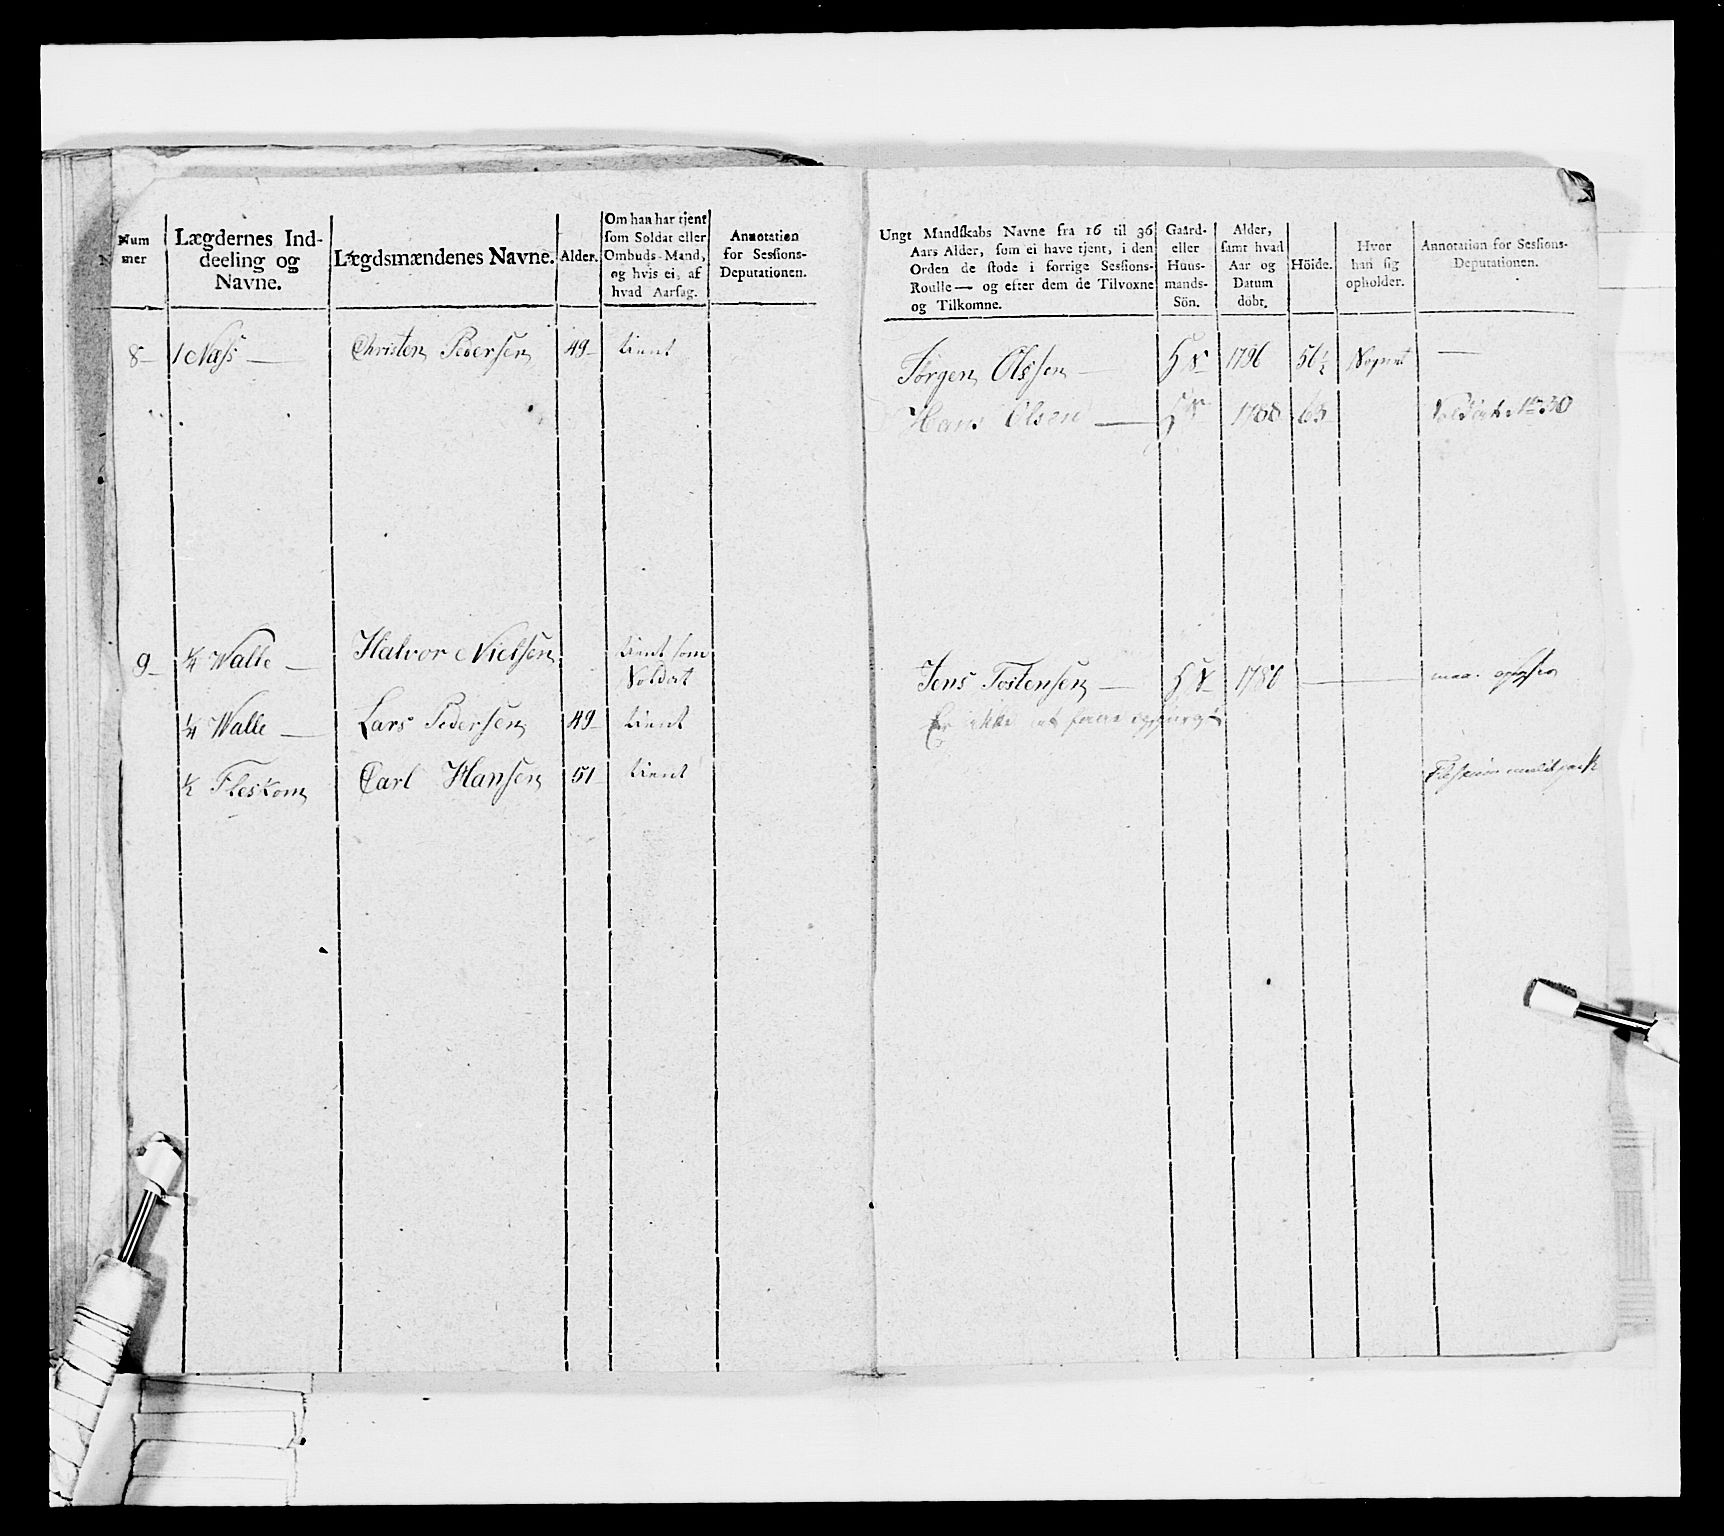 Num
mer
Lægdernes Ind-
deeling og
Navne.
Lægdsmændenes Navne.
Alder.
Om han har tjent
som Soldat eller
Ombuds-Mand,
og hvis ei, af
hvad Aarsag.
Annotation
for Sessions-
Deputationen.
8 1 Næss Christen Pedersen 49 tient
9 ¼ Walle Halvor Nielsen tient som
Soldat
¼ Walle Lars Pedersen 49 tient
½ Fleskom Carl Hansen 51 tient
Ungt Mandskabs Navne fra 16 til 36
Aars Alder, som ei have tjent, i den
Orden de stode i forrige Sessions-
Roulle — og efter dem de Tilvoxne
og Tilkomne.
Gaard-
eller
Huus-
mands-
Sön.
Alder,
samt hvad
Aar og
Datum
döbt.
Höide.
Hvor
han sig
opholder.
Annotation for Sessions-
Deputationen.
Jörgen Olssen 56½ —
Hans Olsen 1788 63 Soldat No 30
Jens Tostensen 1786
Er ikke at faae opspurgt